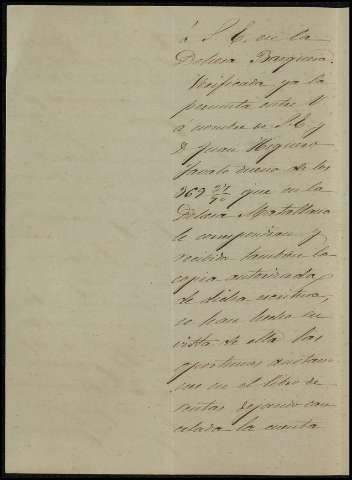 á S. E. en la
Dehesa Burguma.
Verificada ya la
permuta entre V.
á nombre de S. E. y
D. Juan Higuero
Jacato dueno de los
969 27/90 que en la
Dehesa Matallana
le correspondian y
recibida tambien la
copia autorizada
de dicha escritura,
se han hecho en
vista de ella las
oportunas anotacio
nes en el libro de
rentas dejando can
celada la cuenta